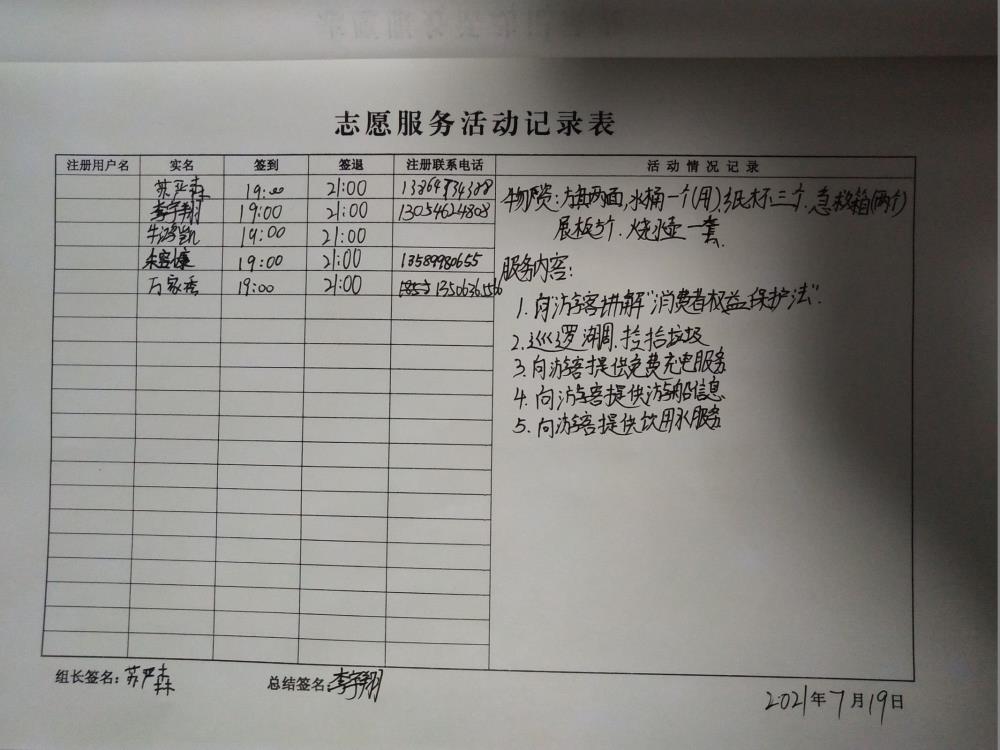 志愿服务活动记录表
注册用户名 实名 签到 签退 注册联系电话 活动情况记录
苏严森 19:00 21:00
李宇翔 19:00 21:00 13054624808
牛鸿凯 19:00 21:00
19:00 21:00 13589980655
万家秀 19:00 21:00
物资:旗两面,水桶一个(用),纸杯三个.急救箱(两个)
展板5个.烧水壶一套.
服务内容:
1.向游客讲解"消费者权益保护法".
2.巡逻湖.捡拾垃圾
3.向游客提供免费充电服务
4.向游客提供游船信息
5.向游客提供饮用水服务
组长签名:苏严森 总结签名:李宇翔
2021年7月19日